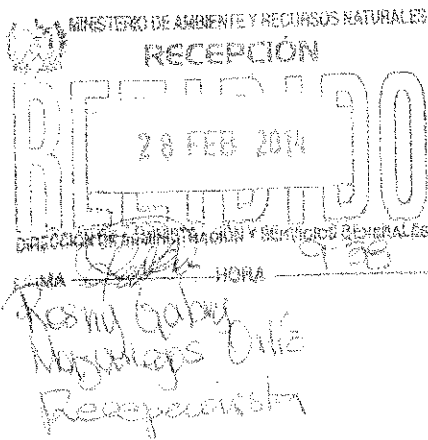 MINISTERIO DE AMBIENTE Y RECURSOS NATURALES
RECEPCIÓN
RECIBIDO
28 FEB 2014
DIRECCIÓN DE ADMINISTRACIÓN Y SERVICIOS GENERALES
FIRMA HORA
Gaby
Recepcionista